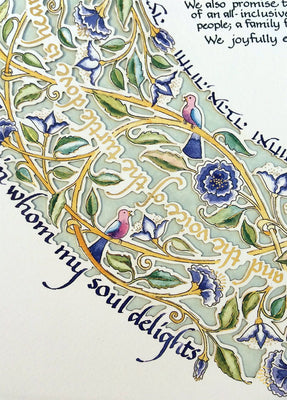 We also promise t
of an all-inclusive
people; a family f
We joyfully e
and the voice of the turtle dove is hear
n whom my soul delights